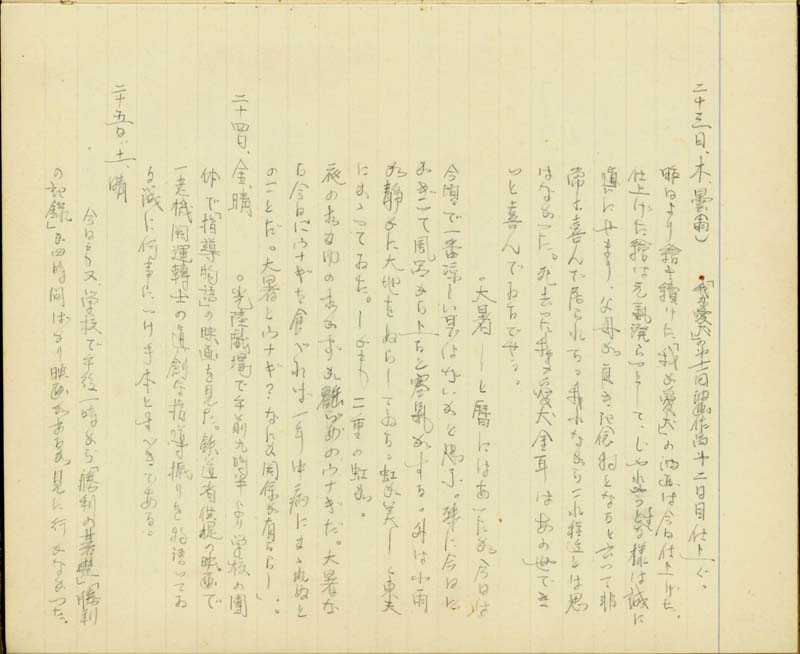 二十三日、木、曇雨) 「我が愛犬」第十一回
昨日より繪を續けた「我が愛犬」の油画は今日仕上げた。
仕上げた繪は元氣溌らつとして、じゃれつく様は誠に
眞にせまり、父母が良き記念物となると云って非
常に喜んで居られる。我れながらこれ程迄とは思
はなかった。死去った我が愛犬金耳はあの世でき
っと喜んでゐるでせう。
。大暑――と暦にはあったが、今日は
今頃で一番涼しい暑ではないかと思ふ。殊に今日は
あざごて風呂から上ると寒氣がする。外は小雨
が静かに大地をぬらしてゐる。虹が美しく東天
にかゝってゐた。しかも二重の虹が。
夜のおかゆのおかずが罐づめのウナギだ。大暑な
る今日にウナギを食べれば一年中病にをかされぬと
のことだ。大暑とウナギ?なにか関係が有るらし」。
二十四日、金、晴 。光陸戯場で午前九時半より学校の團
体で「指導物語」の映画を見た。鉄道省提供の映画で
一老機関運轉士の眞劍な指導振りを物語ってゐ
る。誠に何事につけ手本とすべきである。
二十五日、土、晴
今日も又、学校で午後一時から「勝利の基礎」「勝利
の記録」が四時間ばかり映画があるが見に行かなかった。